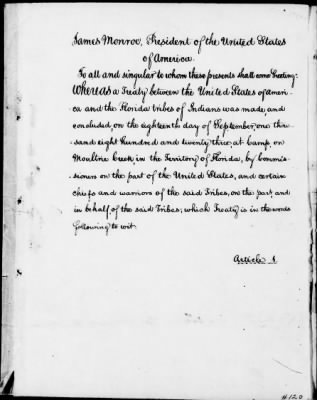 James Monroe, President of the United States
of America.
To all and singular to whom these presents shall come Greeting:
Whereas a Treaty between the United States of Ameri-
ca and the Florida tribes of Indians was made, and
concluded, on the eighteenth day of September, one thou-
sand eight hundred and twenty three, at Camp, on
Moultrie Creek, in the Territory of Florida, by Commis-
sioners on the part of the United States, and certain
chiefs and warriors of the said Tribes, on the part, and
in behalf, of the said Tribes; which Treaty is in the words
following to wit.
Article 1.
#120